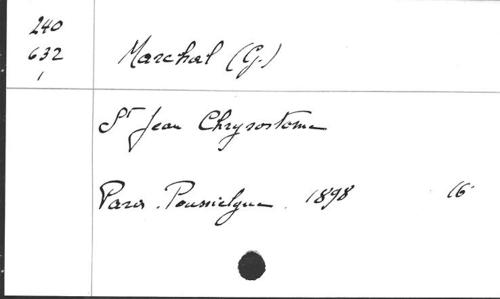 240
632 Marchal (G.)
1
St Jean Chrysostome
Paris. Poussielgue. 1898 16°